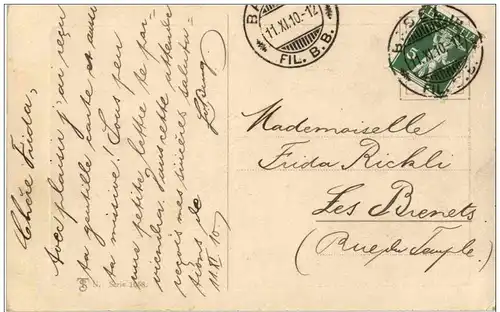 Chère Frida,
Avec plaisir j'ai reçu
ta gentille carte et aussi
ta missive! Sous peu
une petite lettre te par-
viendra. Dans cette attente
reçois mes sincères saluta-
tions de
11.XI.10.
BAS
11.XI.10.-12
FIL. B.B.
11.XI.10
FIL.
Mademoiselle
Frida Rickli
Les Brenets
(Rue du Temple.)
N. Serie